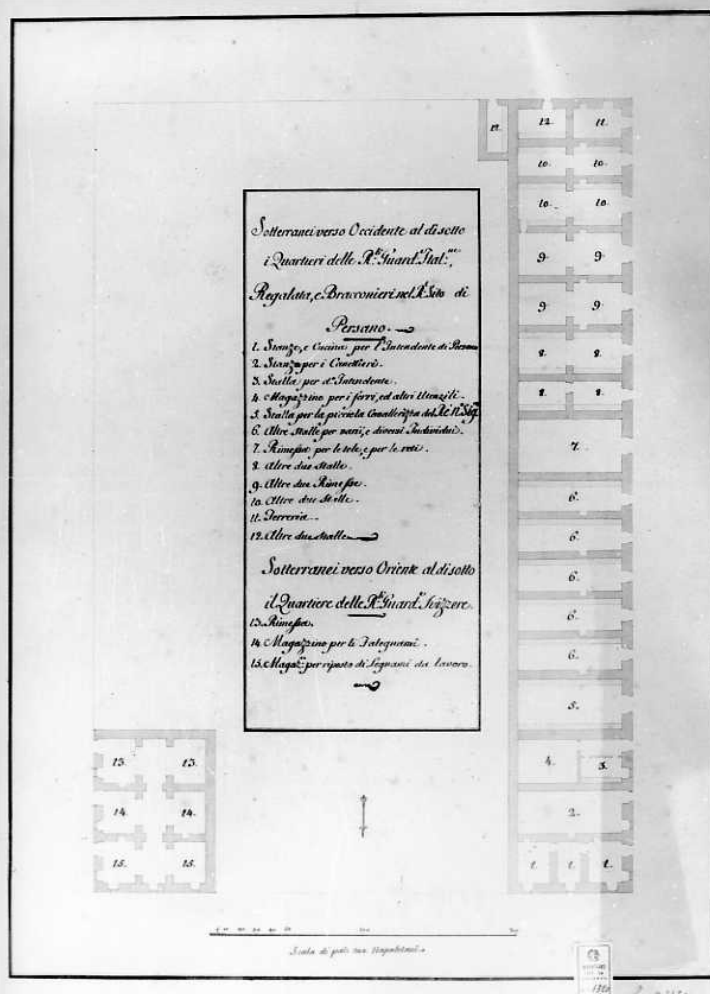 Sotterranei verso Occidente al disotto
i Quartieri delle R.li Guard.e Ital.ne,
Regalata, e Bracconieri nel R.l Sito di
Persano.
1. Stanze, e Cucina per l'Intendente di Persano
2. Stanza per i Canettieri.
3. Stalla per d.o Intendente.
4. Magazzino per i ferri, ed altri Utenzili.
5. Stalla per la piccola Cavallerizza del Rè N. Sig.
6. Altre stalle per varii, e diversi Individui.
7. Rimessa per le tele, e per le reti.
8. Altre due stalle.
9. Altre due Rimesse.
10. Altre due Stalle.
11. Ferreria.
12. Altre due stalle
Sotterranei verso Oriente al disotto
il Quartiere delle R.li Guard.e Svizzere.
13. Rimessa.
14. Magazzino per li Falegnami.
15. Magaz.o per riposto di Legnami da lavoro.
12. 12. 11.
10. 10.
10. 10.
9. 9.
9. 9.
8. 8.
8. 8.
7.
6.
6.
6.
6.
6.
5.
4. 3.
2.
1. 1. 1.
13. 13.
14. 14.
15. 15.
Scala di palmi Napoletani